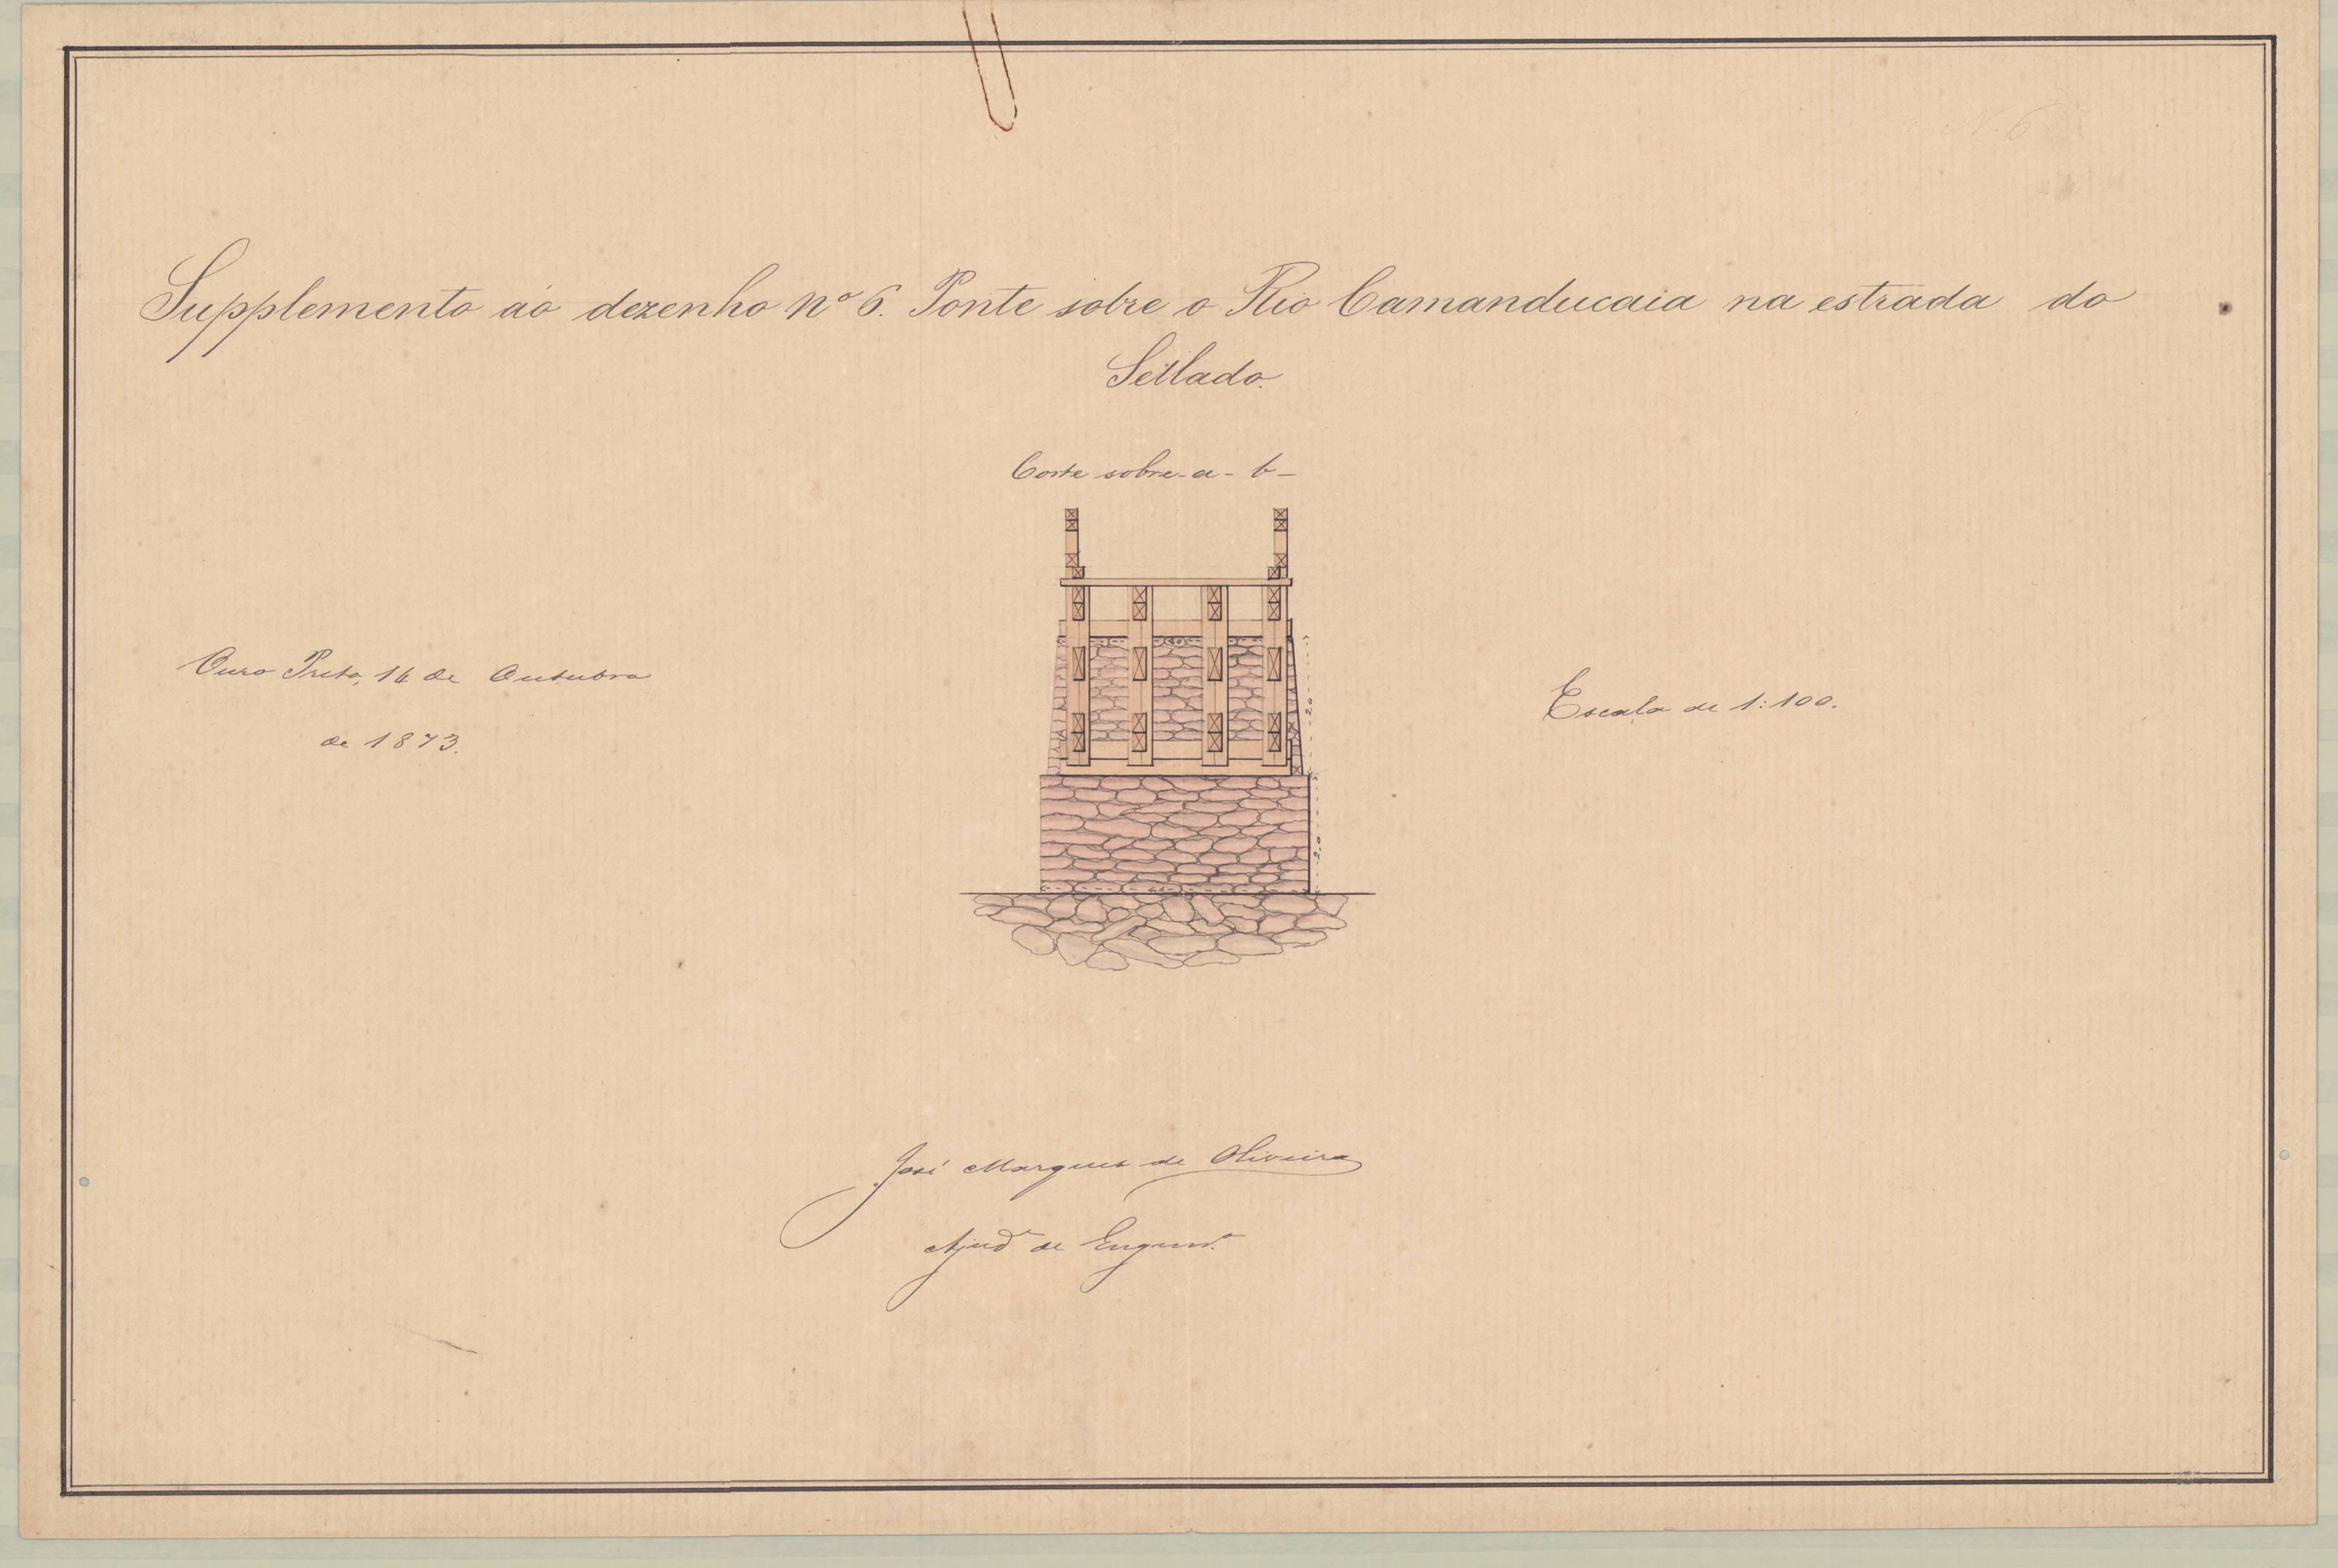 N. 6
Supplemento ao dezenho nº 6. Ponte sobre o Rio Camanducaia na estrada do
Sellado.
Corte sobre - a - b -
Ouro Preto, 14 de Outubro
de 1873.
Escala de 1:100.
2,0
2,0
José Marques de Oliveira
Ajud^e de Engenr.º